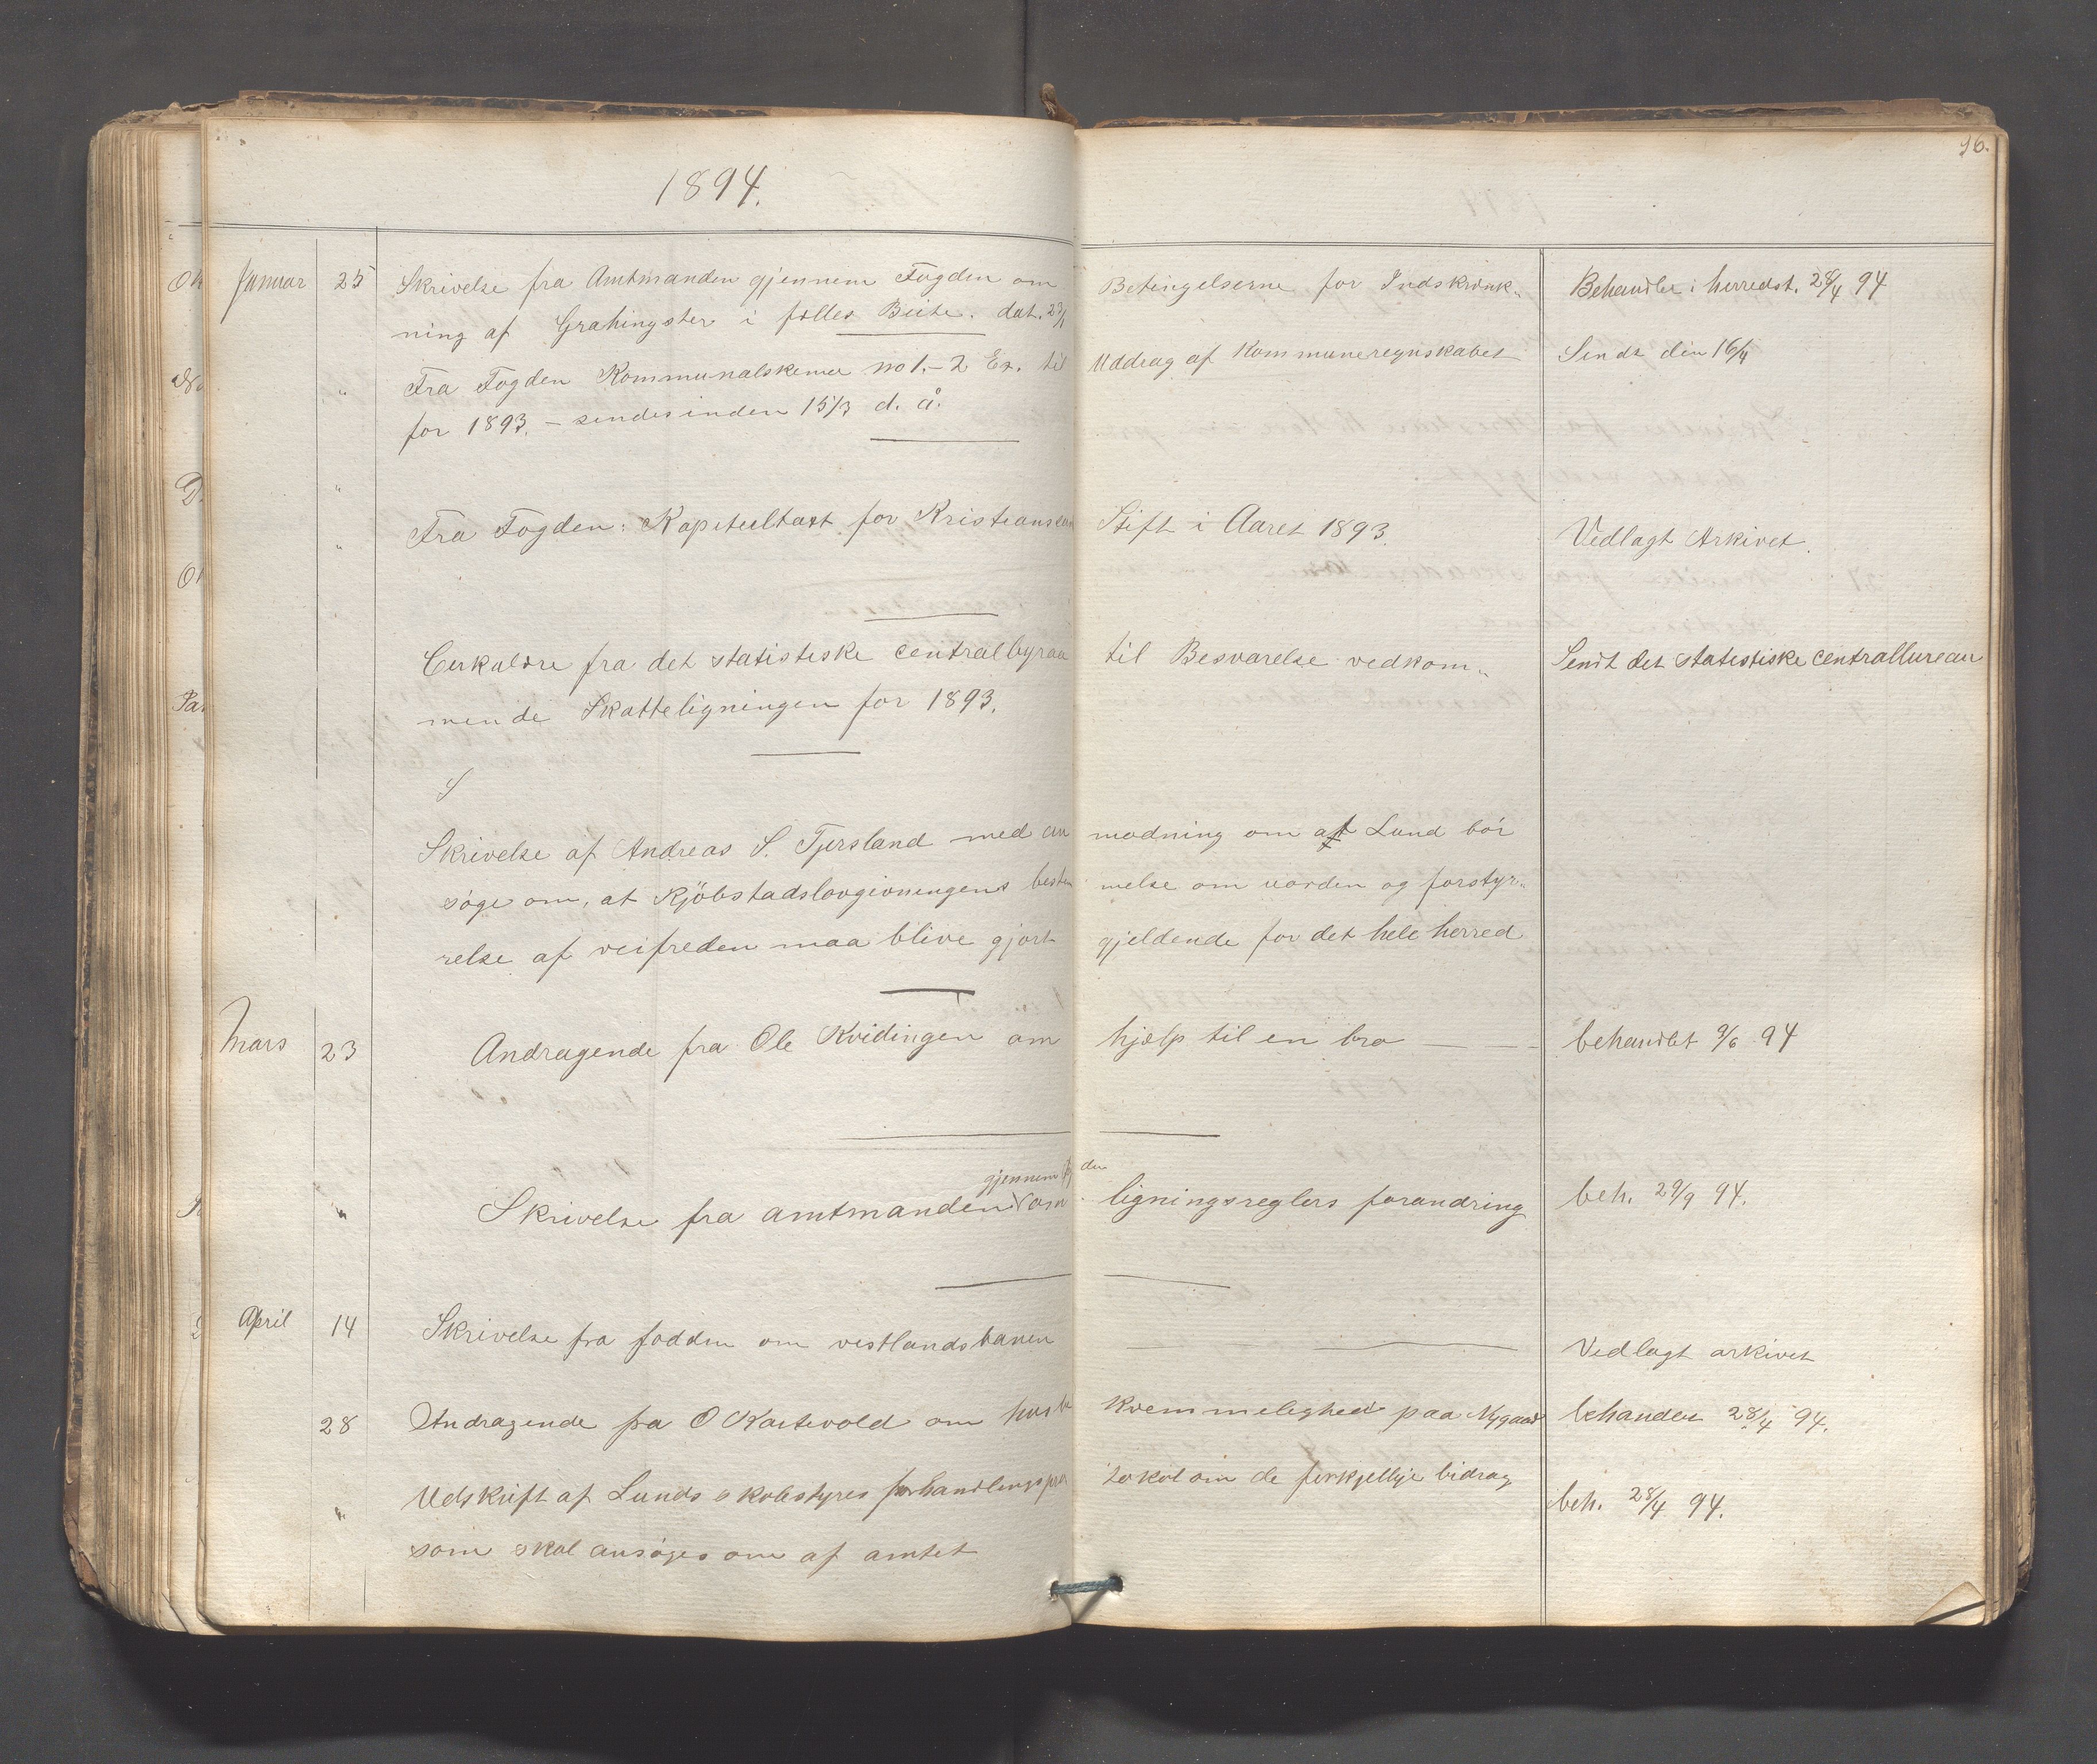 96.
1894.
Januar 25 Skrivelse fra Amtmanden gjennem Fogden om Betingelserne for Indskrænk„ Behandlet i herredst. 28/4 94
ning af Grahingster i fælles Beite. dat. 23/1
" Fra Fogden Kommunalskema no 1.- 2 Ex. til Uddrag af Kommuneregnskabet Sendt den 16/4
for 1893. - sendes inden 15/3 d. å.
" Fra Fogden: Kapiteltaxt for Kristiansan Stift i Aaret 1893. Vedlagt Arkivet.
" Cirkulære fra det statistiske centralbyraa til Besvarelse vedkom„ Sendt det statistiske centralbureau
mende Skatteligningen for 1893.
S
Skrivelse af Andreas S. Tjersland med an modning om at Lund bør
søge om, at Kjöbstadslovgivningens bestem melse om uorden og forstyr„
relse af veifreden maa blive gjort gjeldende for det hele herred
Mars 23 Andragende fra Ole Kvidingen om hjælp til en bro behandlet 9/6 94
gjennem den
" Skrivelse fra amtmanden om ligningsreglers forandring beh. 29/9 94.
April 14 Skrivelse fra fodden om vestlandsbanen Vedlagt arkivet
28 Andragende fra O Kartevold om husbe kvemmelighed paa Nygaard behandlet 28/4 94.
" Udskrift af Lunds skolestyres forhandlingspro tokol om de forkjellige bidrag beh. 28/4 94.
som skal ansöges om af amtet